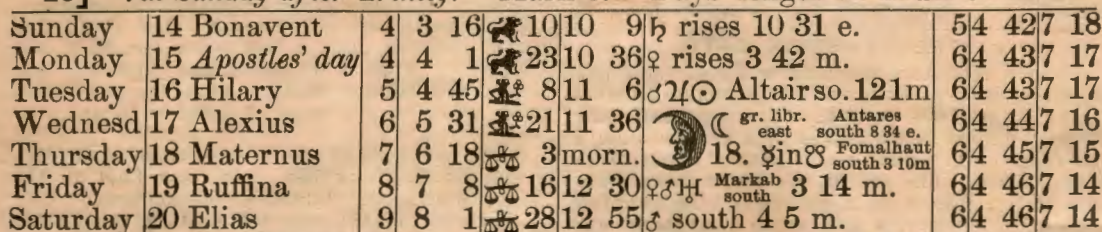 Sunday 14 Bonavent 4 3 16 10 10 9 ♄ rises 10 31 e. 5 4 42 7 18
Monday 15 Apostles' day 4 4 1 23 10 36 ♀ rises 3 42 m. 6 4 43 7 17
Tuesday 16 Hilary 5 4 45 8 11 6 ☌♃☉ Altair so. 12 1m 6 4 43 7 17
Wednesd 17 Alexius 6 5 31 21 11 36 ☾ gr. libr. east Antares south 8 34 e. 6 4 44 7 16
Thursday 18 Maternus 7 6 18 ♎ 3 morn. 18. ☿in☋ Fomalhaut south 3 10m 6 4 45 7 15
Friday 19 Ruffina 8 7 8 ♎ 16 12 30 ♀☌♅ Markab south 3 14 m. 6 4 46 7 14
Saturday 20 Elias 9 8 1 ♎ 28 12 55 ♂ south 4 5 m. 6 4 46 7 14